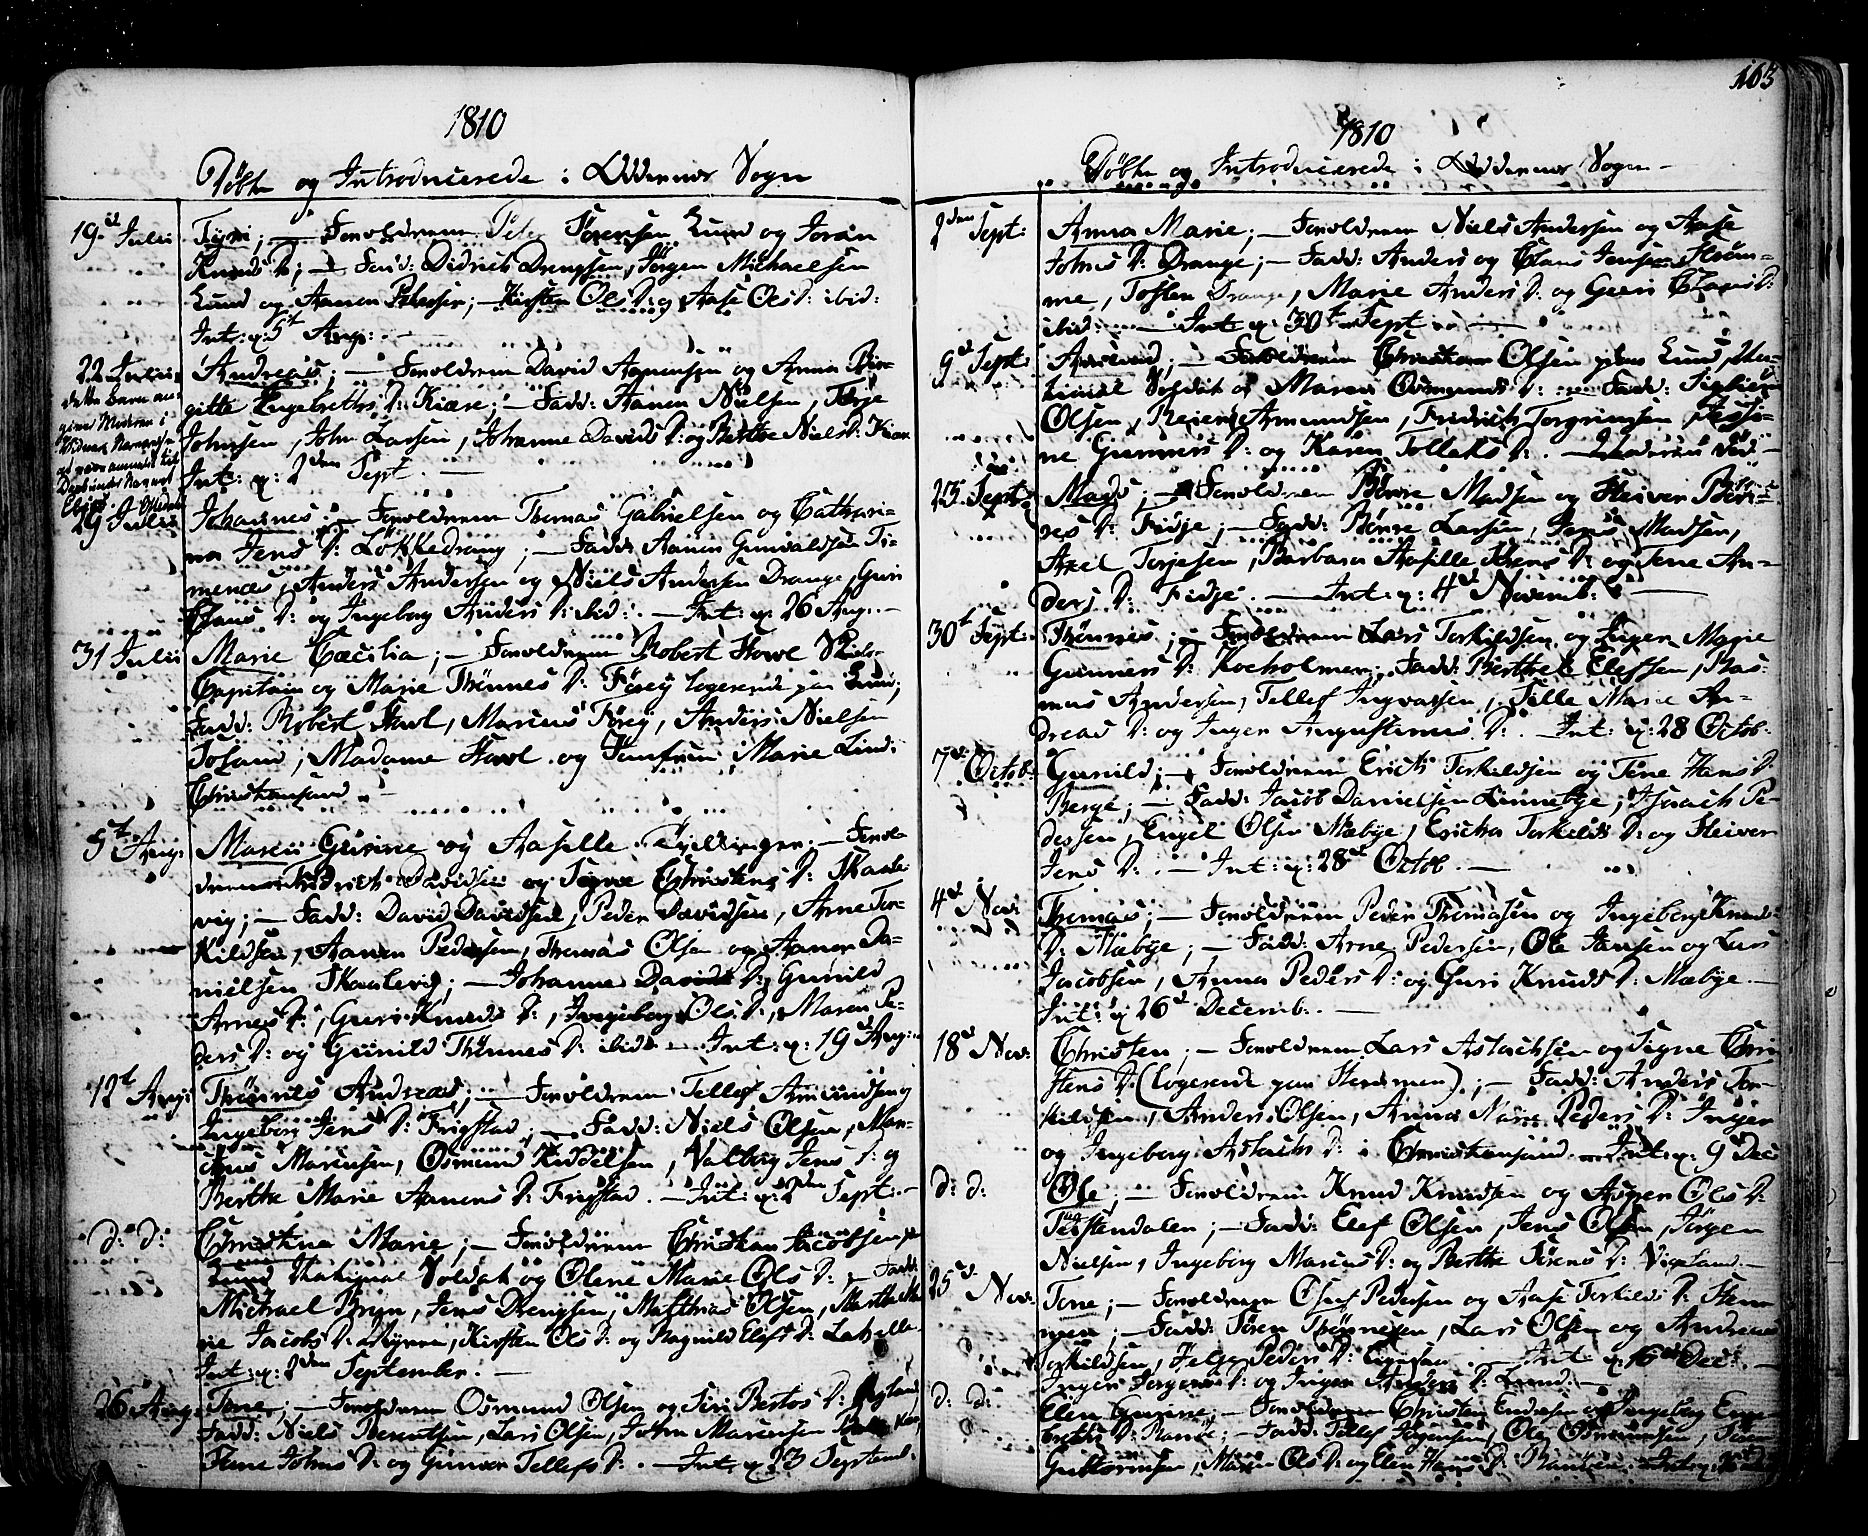 1810
Döbte og Introducerede i Oddernæs Sogn
19d Julii
Signe; — Forældrene Peter Sörensen Lund og Joran
Knuds D:; — Fadd: Didrich Drengsen, Jörgen Michaelsen
Lund og Aanen Pedersen; — Kirsten Ols D: og Aase Ols D: ibid:
Int: q: 5t Aug: —
22 Julii
dette Barn an-
giver Moderen i
Andreas; — Forældrene David Aanensen og Anna Bir-
gitte Engebrethts D: Kiære; — Fadd: Aanen Nielsen, Terje
Johnsen, John Larsen, Johanne Davids D: og Berthe Niels D: Kiær
Int: q: 2den Sept. —
29 Julii
Johannes; — Forældrene Thomas Gabrielsen og Cathari-
na Jens D: Lökkedrang; — Fadd: Aanen Gunvaldsen Ti-
menæs, Anders Andersen og Niels Andersen Drange, Guri
Claus D: og Ingeborg Anders D: ibid: — Int: q: 26 Aug: —
31 Julii
Marie Cæcilia; — Forældrene Robert Howl Skibs-
Capitain og Marie Thönnes D: Föreÿ logerende paa Lund;
Fadd: Robert Howl, Marcus Föreÿ, Anders Nielsen
Toland, Madame Howl og Jomfrue Marie Lind:
Christiansand. —
5t Aug:
Maren Gurine og Aasille Tvillinger; — Foræl-
drene Fridrich Davidsen og Signe Christens D: Skaale-
vig; — Fadd: David Davidsen, Peder Davidsen, Arne Ter-
kildsen, Aanen Pedersen, Thomas Olsen og Aanen Da-
nielsen Skaalevig; — Johanne Davids D:, Gunild
Arnes D:, Guri Knuds D:, Ingeborg Ols D:, Maren Pe-
ders D: og Gunild Thönnes D: ibid: — Int: q: 19d Aug:
12t Aug:
Thönnes Andreas; — Forældrene Tellef Amundsen og
Ingeborg Jens D: Frigstad; — Fadd: Niels Olsen, Mar-
cus Marcusen, Osmund Kiddelsen, Valborg Jens D: og
Berthe Marie Aanens D: Frigstad. — Int: q: 2den Sept: —
d: d:
Christine Marie; — Forældrene Christian Jacobsen paa
Lund National Soldat og Olene Marie Ols D: — Fadd:
Michael Bruun, Jens Drengsen, Matthias Olsen, Marthe Ma-
rie Jacobs D:, Kirsten Ols D: og Ragnild Elefs D: Labelle.
Int: q: 2den September. —
26 Aug:
Tone; — Forældrene Osmund Olsen og Siri Bertos D:
Fadd: Niels Berentsen, Lars Olsen, John Marcusen
Tone Johns D: og Gunvor Tellefs D: — Int: q: 23 Septemb:
163
1810
Döbte og Introducerede i Oddernæs Sogn —
2den Sept:
Anna Marie; — Forældrene Niels Andersen og Aase
Johns D: Drange; — Fadd: Anders og Claus Jensen Ström-
me, Tosten Drange, Marie Anders D: og Guri Claus D:
ibid: — Int: q: 30t Sept. —
9d Sept:
; — Forældrene Christian Olsen paa Lund, Na-
tional Soldat og Maren Osmunds D: — Fadd:
Olsen, Reier Amundsen, Fridrich Torgrimsen, Jossi-
ne Gunners D: og Karen Tollaks D:. —
23 Sept:
Mads; — Forældrene Börre Madsen og Steiver Bör-
res D: Fidje; — Fadd: Börre Larsen, Jens Madsen,
Axel Terjesen, Barbara Aasille Jens D: og Tone An-
ders D: Fidje. — Int: q: 4d Novemb: —
30t Sept:
Thönnes; — Forældrene Lars Torkildsen og Inger Marie
Gunners D: Kocholmen; Fadd: Berthel Elefsen, Ras-
mus Andersen, Tellef Ingvarsen, Sille Marie An-
dreas D: og Inger Augustinus D:. — Int: q: 28 Octob:
7d Octob:
Gunild; — Forældrene Erich Torkildsen og Tone Hans D:
Berge; — Fadd: Jacob Danielsen Linnebÿe, Isaach Pe-
dersen, Engel Olsen Mæbÿe, Ericha Torkilds D: og Steiver
Jens D:. — Int: q: 28d Octob. —
4d Nov:
Thomas; — Forældrene Peder Thomasen og Ingeborg Knuds
D: Mæbÿe; — Fadd: Arne Pedersen, Ole Jansen og Lars
Jacobsen, Anna Peders D: og Guri Knuds D: Mæbÿe. —
Int: q: 26d Decemb:. —
18d Nov:
Christen; — Forældrene Lars Astachsen og Signe Chri-
stens D: (logerende paa Stensmen); — Fadd: Anders Tor-
kildsen, Anders Olsen, Anna Marie Peders D:
og Ingeborg Astachs D: i Christiansand. — Int: q: 9d Dec:
d: d:
Ole; — Forældrene Knud Knudsen og Asgier Ols D:
Torstendalen; — Fadd: Elef Olsen, Jens Olsen, Jörgen
Nielsen, Ingeborg Marcus D: og Berthe Sörens D: Vigeland. —
25d Nov:
Tone; — Forældrene Oluf Pedersen og Aase Torkilds D: Stem-
men; — Fadd: Sören Thönnesen, Lars Olsen og Andreas
Torkildsen, Helge Peders D: — Int: q: 16d Dec:. —
Inger Jörgens D: og Inger Anders D: Lund. —
d: d:
Elen Gurine; — Forældrene Christen Endresen og Ingeborg
D:; — Fadd: Tellef Jörgensen, Ole Osmundsen,
Guttormsen, Maren Ols D: og Elen Hans D: